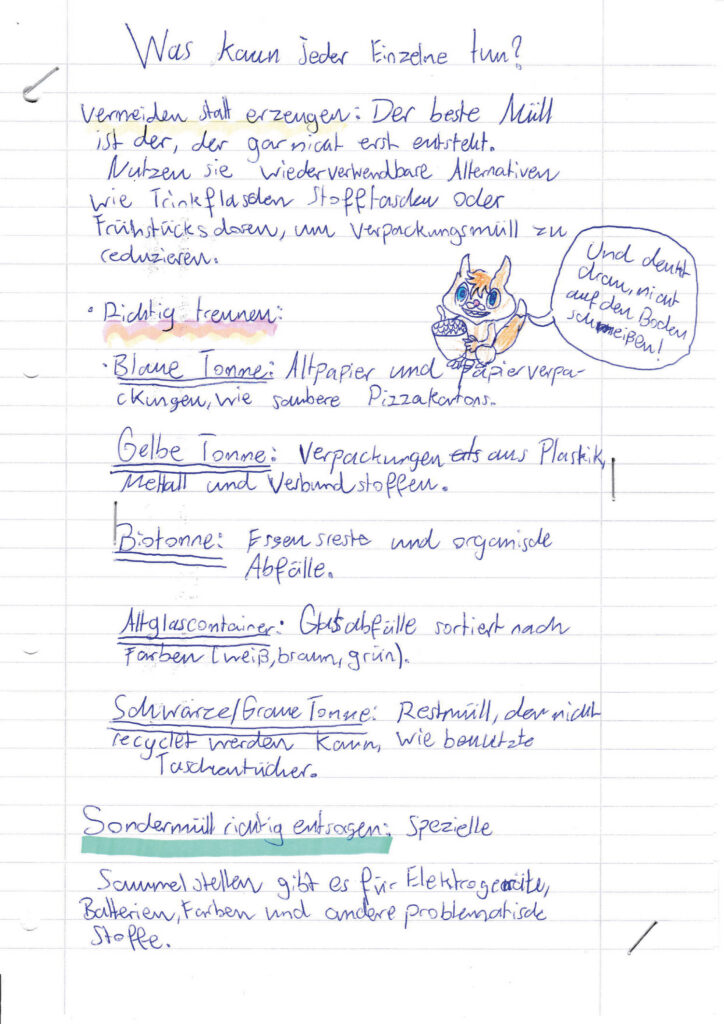 Was kann jeder Einzelne tun?
Vermeiden statt erzeugen: Der beste Müll
ist der, der gar nicht erst entsteht.
Nutzen sie wiederverwendbare Alternativen
wie Trinkflaschen Stofftaschen oder
Frühstücksdosen, um Verpackungsmüll zu
reduzieren.
Und denkt
dran, nicht
auf den Boden
schmeißen!
· Richtig trennen:
· Blaue Tonne: Altpapier und Papierverpa-
ckungen, wie saubere Pizzakartons.
Gelbe Tonne: Verpackungen aus Plastik,
Mettall und Verbundstoffen.
Biotonne: Essensreste und organische
Abfälle.
Altglascontainer: Glasabfälle sortiert nach
Farben (weiß, braun, grün).
Schwarze/Graue Tonne: Restmüll, der nicht
recyclet werden kann, wie benutzte
Taschentücher.
Sondermüll richtig entsagen: Spezielle
Sammelstellen gibt es für Elektrogeräte,
Batterien, Farben und andere problematische
Stoffe.